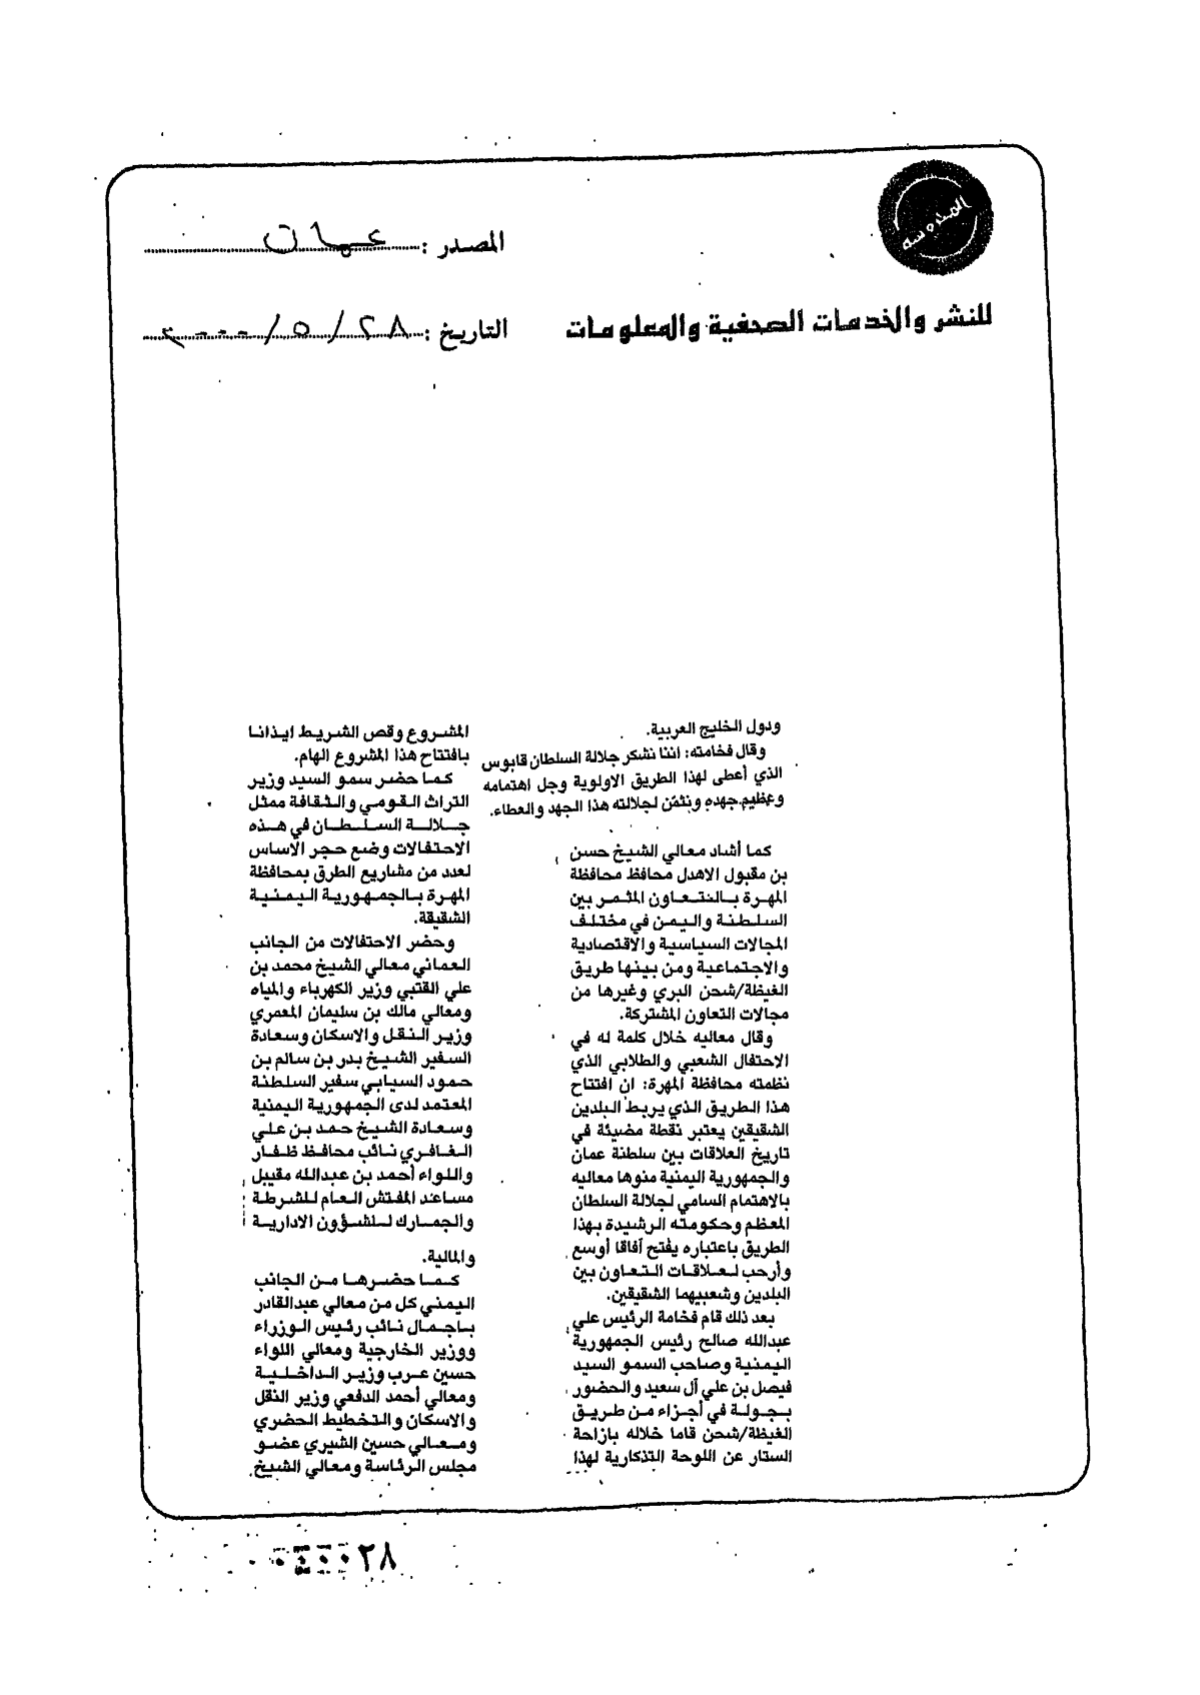 المدروسه
المصدر : عمان
للنشر والخدمات الصحفية والمعلومات
التاريخ : ٢٨ / ٥ / ٢٠٠٠
ودول الخليج العربية.
وقال فخامته: اننا نشكر جلالة السلطان قابوس
الذي أعطى لهذا الطريق الاولوية وجل اهتمامه
وعظيم جهده ونثمّن لجلالته هذا الجهد والعطاء.
كما أشاد معالي الشيخ حسن
بن مقبول الاهدل محافظ محافظة
المهرة بالتعاون المثمر بين
السلطنة واليمن في مختلف
المجالات السياسية والاقتصادية
والاجتماعية ومن بينها طريق
الغيظة/شحن البري وغيرها من
مجالات التعاون المشتركة.
وقال معاليه خلال كلمة له في
الاحتفال الشعبي والطلابي الذي
نظمته محافظة المهرة: ان افتتاح
هذا الطريق الذي يربط البلدين
الشقيقين يعتبر نقطة مضيئة في
تاريخ العلاقات بين سلطنة عمان
والجمهورية اليمنية منوها معاليه
بالاهتمام السامي لجلالة السلطان
المعظم وحكومته الرشيدة بهذا
الطريق باعتباره يفتح آفاقا أوسع
وأرحب لعلاقات التعاون بين
البلدين وشعبيهما الشقيقين.
بعد ذلك قام فخامة الرئيس علي
عبدالله صالح رئيس الجمهورية
اليمنية وصاحب السمو السيد
فيصل بن علي آل سعيد والحضور
بجولة في أجزاء من طريق
الغيظة/شحن قاما خلاله بازاحة
الستار عن اللوحة التذكارية لهذا
المشروع وقص الشريط ايذانا
بافتتاح هذا المشروع الهام.
كما حضر سمو السيد وزير
التراث القومي والثقافة ممثل
جلالة السلطان في هذه
الاحتفالات وضع حجر الاساس
لعدد من مشاريع الطرق بمحافظة
المهرة بالجمهورية اليمنية
الشقيقة.
وحضر الاحتفالات من الجانب
العماني معالي الشيخ محمد بن
علي القتبي وزير الكهرباء والمياه
ومعالي مالك بن سليمان المعمري
وزير النقل والاسكان وسعادة
السفير الشيخ بدر بن سالم بن
حمود السيابي سفير السلطنة
المعتمد لدى الجمهورية اليمنية
وسعادة الشيخ حمد بن علي
الغافري نائب محافظ ظفار
واللواء أحمد بن عبدالله مقيبل
مساعد المفتش العام للشرطة
والجمارك للشؤون الادارية
والمالية.
كما حضرها من الجانب
اليمني كل من معالي عبدالقادر
باجمال نائب رئيس الوزراء
ووزير الخارجية ومعالي اللواء
حسين عرب وزير الداخلية
ومعالي أحمد الدفعي وزير النقل
والاسكان والتخطيط الحضري
ومعالي حسين الشيري عضو
مجلس الرئاسة ومعالي الشيخ